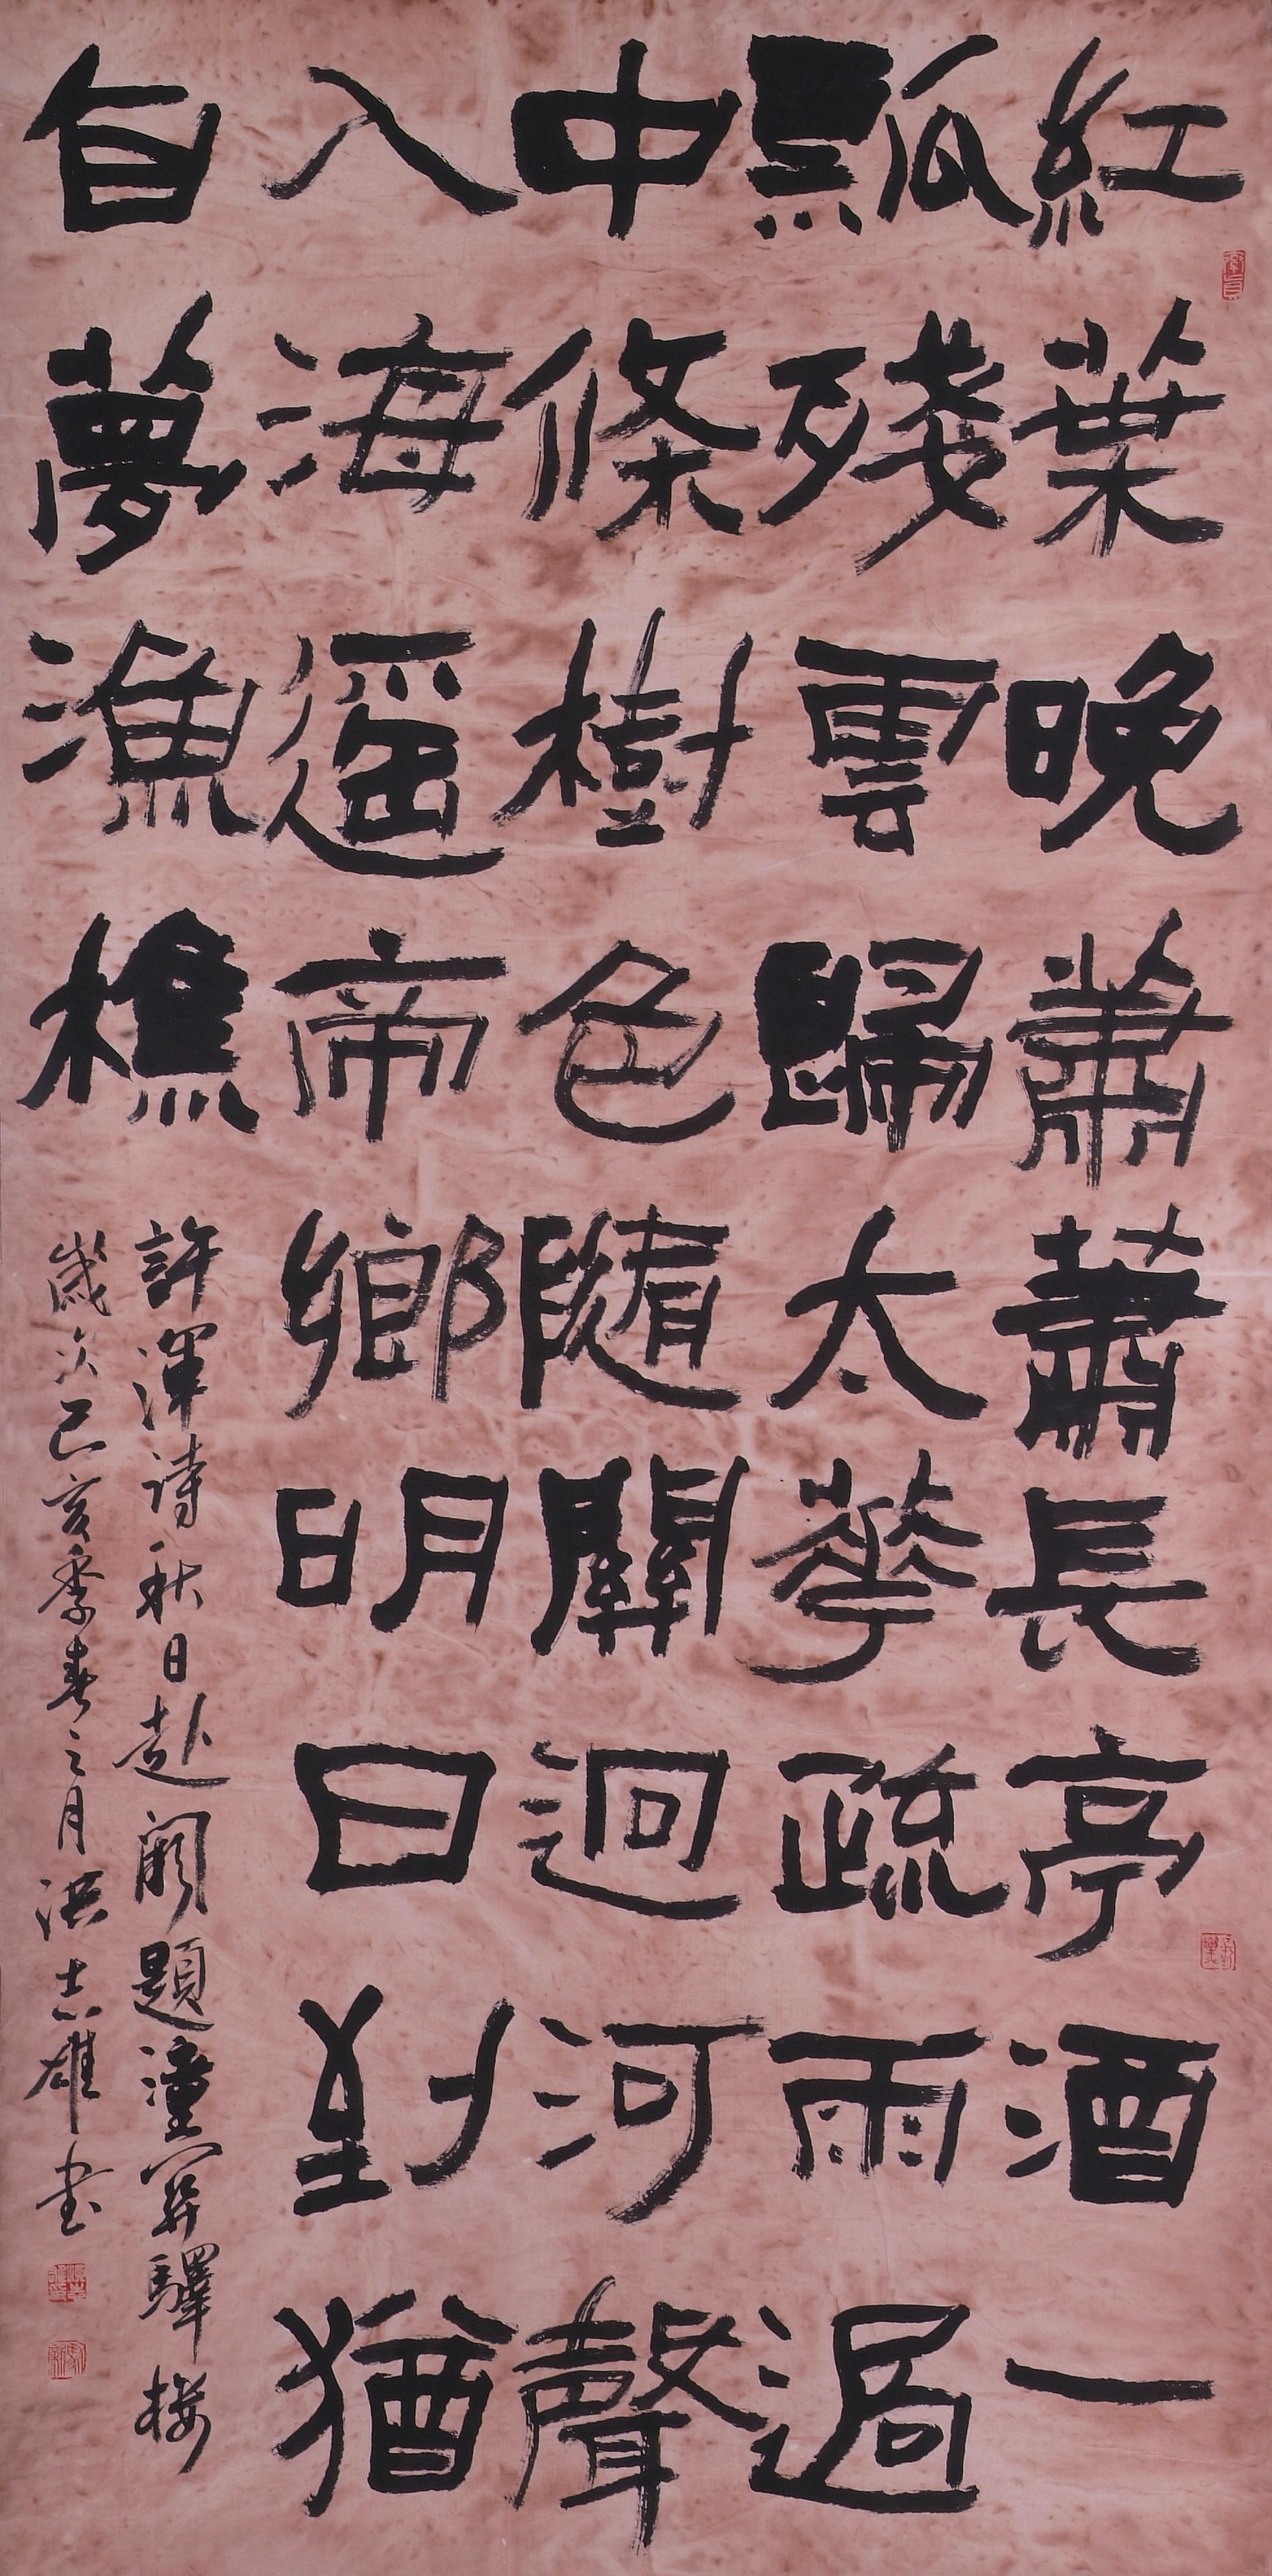 紅葉晚蕭蕭長亭酒一
瓢殘雲歸太華疏雨過
中條樹色隨關迥河聲
入海遙帝鄉明日到猶
自夢漁樵
許渾詩秋日赴闕題潼關驛樓
歲次己亥季春之月洪志雄書